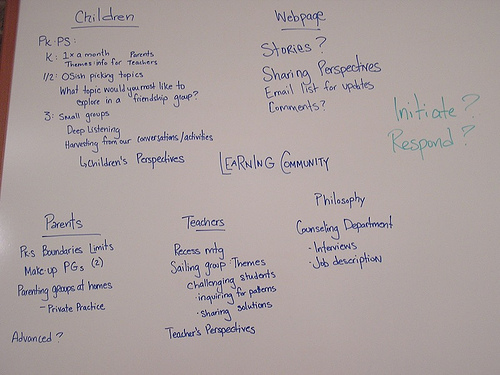 Children
PK-PS:
K: 1x a month Parents
Themes info for Teachers
1/2: OSish picking topics
What topic would you most like to
explore in a friendship group?
3: Small groups
Deep Listening
Harvesting from our conversations/activities
↳ children's Perspectives
Webpage
Stories?
Sharing Perspectives
Email list for updates
Comments?
Initiate?
Respond?
LEARNING COMMUNITY
Parents
PK-3 Boundaries Limits
Make-up PGs (2)
Parenting groups at homes
- Private Practice
Advanced?
Teachers
Recess mtg
Sailing group Themes
challenging students
· inquiring for patterns
· sharing solutions
Teacher's Perspectives
Philosophy
Counseling Department
· Interviews
· Job description